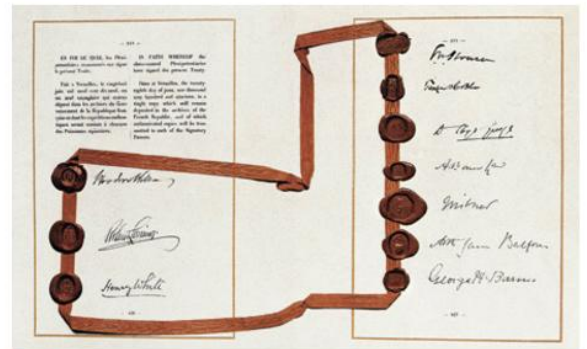 EN FOI DE QUOI, les Pléni-
potentiaires susnommés ont signé
le présent Traité.
Fait à Versailles, le vingt-huit
juin mil neuf cent dix-neuf, en
un seul exemplaire qui restera
déposé dans les archives du Gou-
vernement de la République fran-
çaise et dont les expéditions authen-
tiques seront remises à chacune
des Puissances signataires.
IN FAITH WHEREOF the
above-named Plenipotentiaries
have signed the present Treaty.
Done at Versailles, the twenty-
eighth day of June, one thousand
nine hundred and nineteen, in a
single copy which will remain
deposited in the archives of the
French Republic, and of which
authenticated copies will be trans-
mitted to each of the Signatory
Powers.
Woodrow Wilson
Robert Lansing
Henry White
D Lloyd George
A Bonar Law
Milner
Arthur James Balfour
George N. Barnes